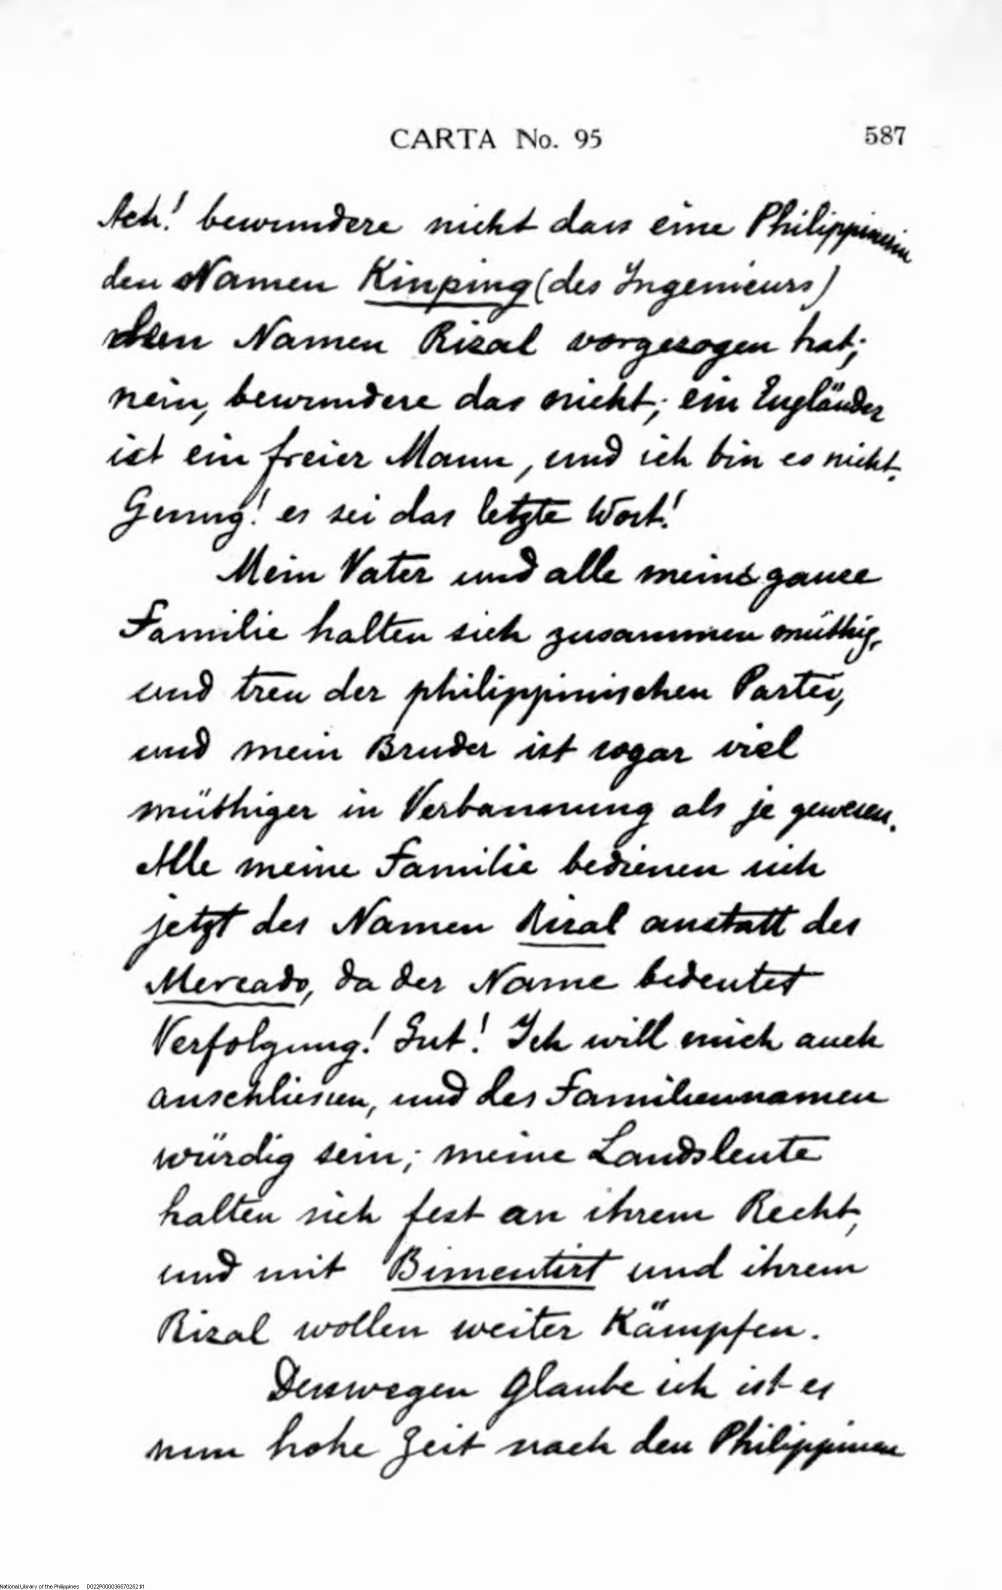 CARTA No. 95 587
Ach! bewundere nicht dass eine Philippinerin
den Namen Kinping (des Ingenieurs)
dem Namen Rizal vorgezogen hat;
nein, bewundere das nicht; ein Engländer
ist ein freier Mann, und ich bin es nicht.
Genug! es sei das letzte Wort!
Mein Vater und alle meine ganze
Familie halten sich zusammen müthig,
und treu der philippinischen Partei,
und mein Bruder ist sogar viel
müthiger in Verbannung als je gewesen.
Alle meine Familie bedienen sich
jetzt des Namen Rizal anstatt des
Mercado, da der Name bedeutet
Verfolgung! Gut! Ich will mich auch
anschliessen, und des Familiennamen
würdig sein; meine Landsleute
halten sich fest an ihrem Recht,
und mit Bimentirt und ihrem
Rizal wollen weiter Kämpfen.
Desswegen glaube ich ist es
nun hohe Zeit nach den Philippinen
National Library of the Philippines